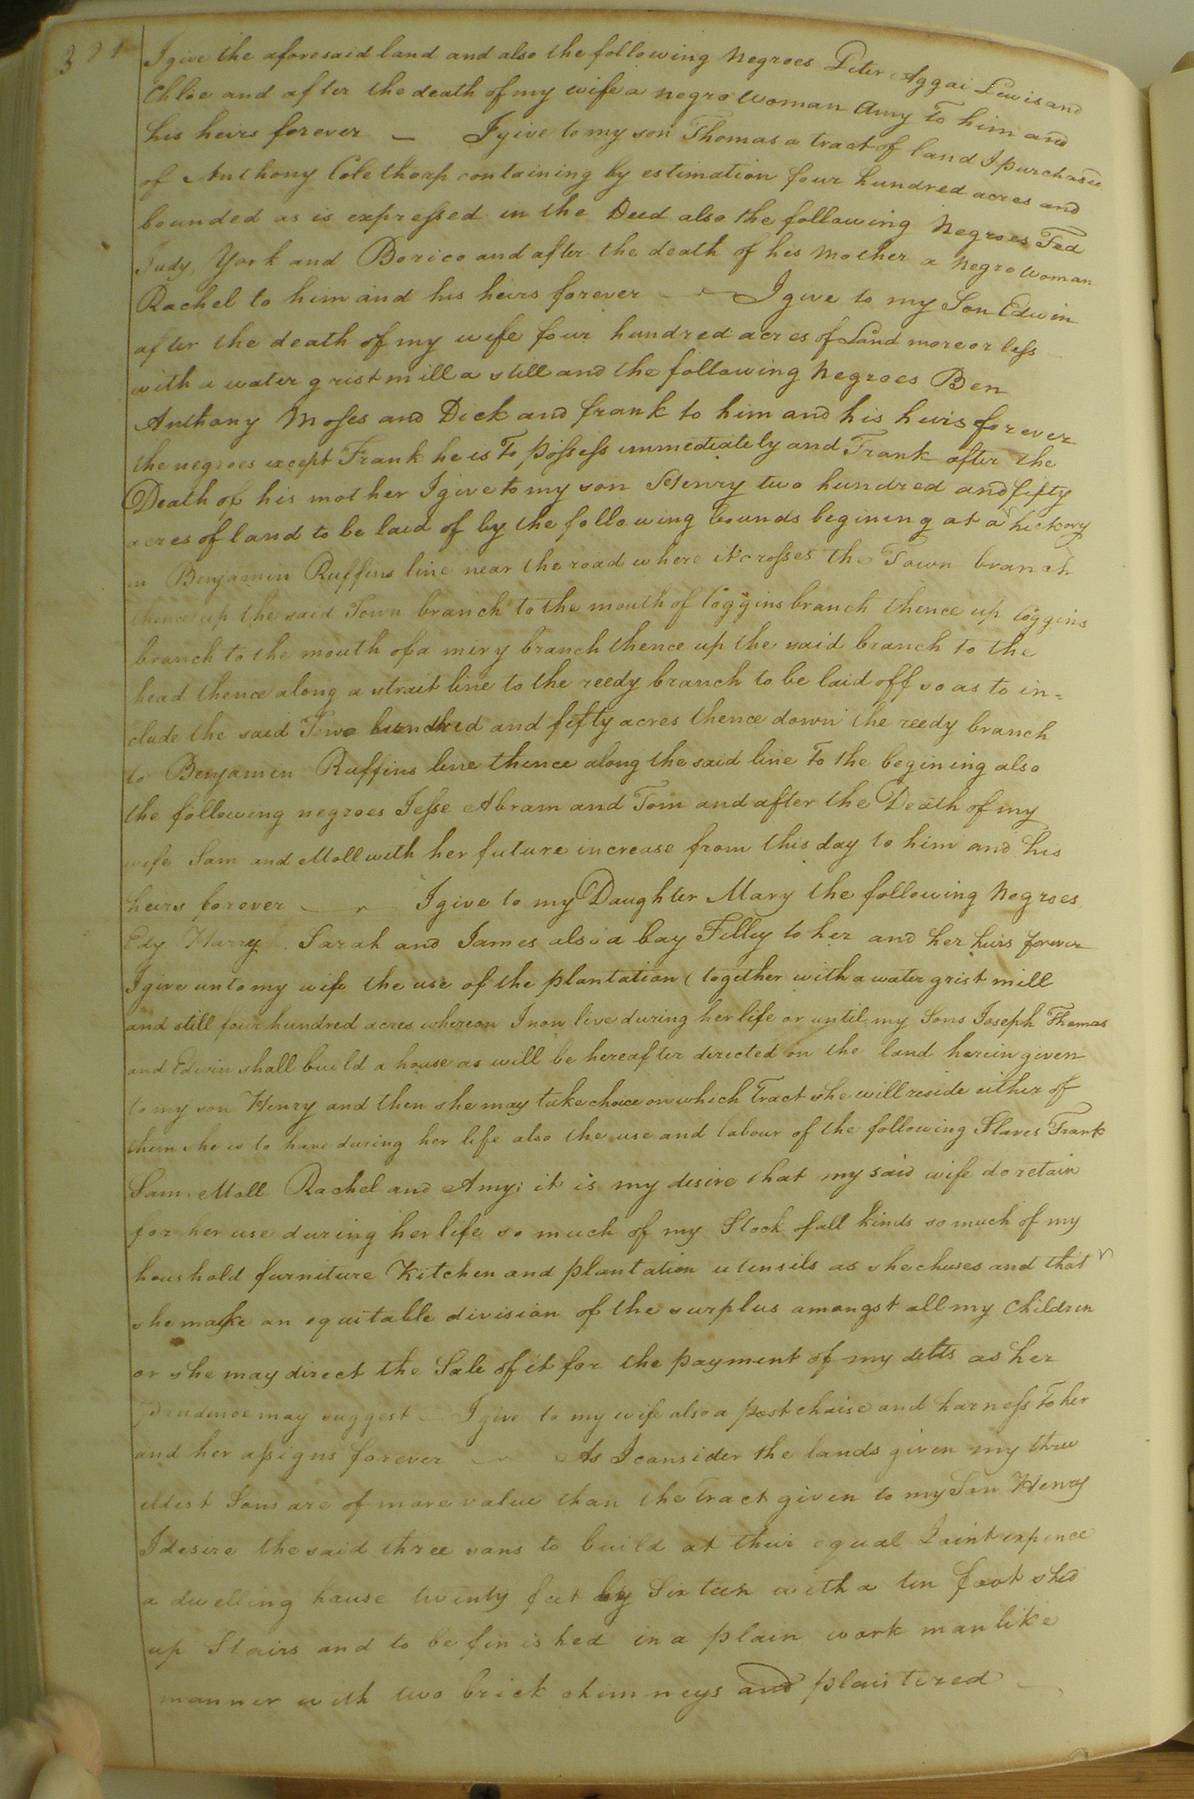 I give the aforesaid land and also the following Negroes Peter Aggai Lewis and
Chloe and after the death of my wife a negro woman Amy To him and
his heirs forever — I give to my son Thomas a tract of land I purchased
of Anthony Colethorp containing by estimation four hundred acres and
bounded as is expressed in the Deed also the following Negroes Ted
Judy York and Borico and after the death of his Mother a Negro woman
Rachel to him and his heirs forever — I give to my Son Edwin
after the death of my wife four hundred acres of Land more or less
with a water grist mill a still and the following Negroes Ben
Anthony Moses and Dick and frank to him and his heirs forever
the negroes except Frank he is To possess immediately and Frank after the
Death of his mother I give to my son Henry two hundred and fifty
acres of land to be laid of by the following bounds begining at a hickory
in Benjamin Ruffins line near the road where it crosses the Town branch
thence up the said Town branch to the mouth of Coggins branch thence up Coggins
branch to the mouth of a miry branch thence up the said branch to the
head thence along a strait line to the reedy branch to be laid off so as to in=
clude the said Two hundred and fifty acres thence down the reedy branch
to Benjamin Ruffins line thence along the said line To the begining also
the following negroes Jesse Abram and Tom and after the Death of my
wife Sam and Moll with her future increase from this day to him and his
heirs forever — I give to my Daughter Mary the following Negroes
Edy Harry Sarah and James also a bay Filley to her and her heirs forever
I give unto my wife the use of the plantation (together with a water grist mill
and still four hundred acres whereon I now live during her life or until my Sons Joseph Thomas
and Edwin shall build a house as will be hereafter directed on the land herein given
to my son Henry and then she may take choice on which Tract she will reside either of
them she is to have during her life also the use and labour of the following Slaves Frank
Sam Moll Rachel and Amy; it is my desire that my said wife do retain
for her use during her life so much of my Stock of all kinds so much of my
houshold furniture Kitchen and plantation utensils as she chuses and that
she make an equitable division of the surplus amongst all my Children
or she may direct the Sale of it for the payment of my debts as her
Prudence may suggest — I give to my wife also a post chaise and harness To her
and her assigns forever — As I consider the lands given my three
eldest Sons are of more value than the tract given to my Son Henry
I desire the said three sons to build at their equal Joint expence
a dwelling house twenty feet by Sixteen with a ten foot shed
up Stairs and to be finished in a plain workmanlike
manner with two brick chimneys and plaistered —